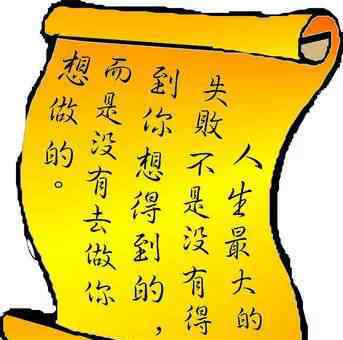 人生最大的
失敗不是没有得
到你想得到的，
而是没有去做你
想做的。